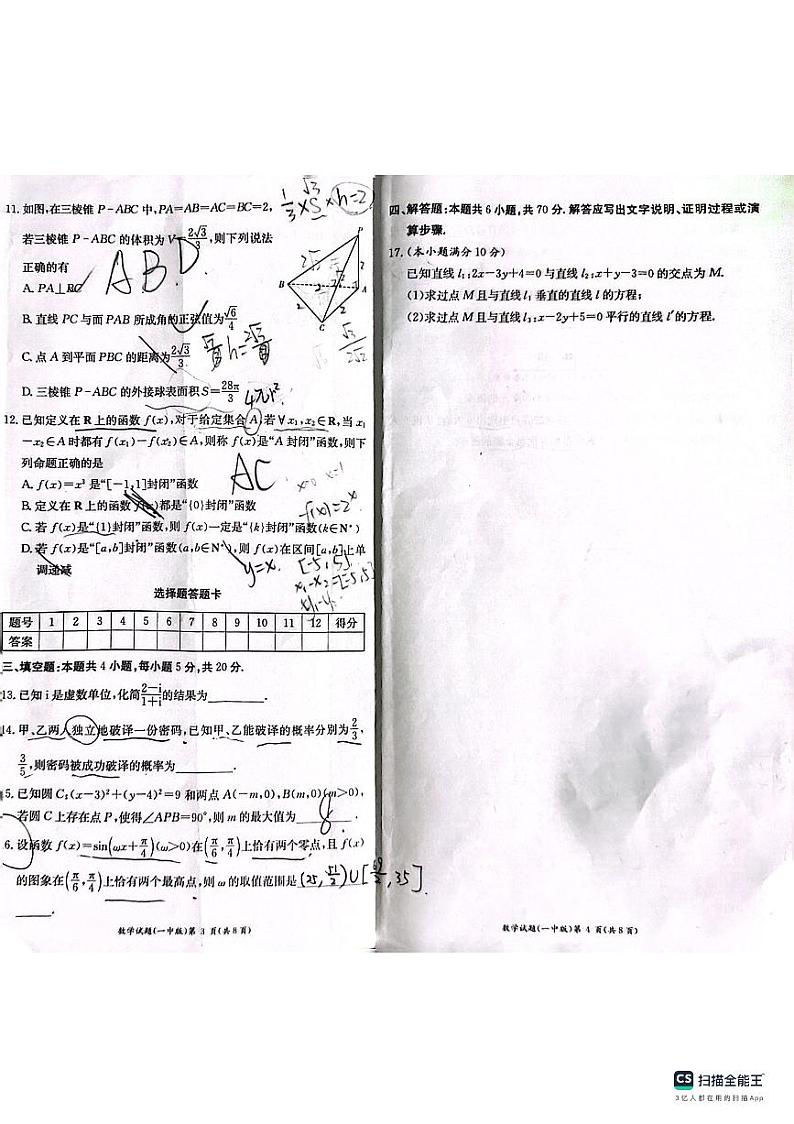 11. 如图,在三棱锥 P-ABC 中,PA=AB=AC=BC=2,
1/3 × √3 S × h=2
若三棱锥 P-ABC 的体积为 V=2√3/3,则下列说法
正确的有
ABD
A. PA⊥BC
B. 直线 PC 与面 PAB 所成角的正弦值为√6/4
C. 点 A 到平面 PBC 的距离为2√3/3
D. 三棱锥 P-ABC 的外接球表面积 S=28π/3
4πr²
P
B
A
C
12. 已知定义在 R 上的函数 f(x),对于给定集合 A,若∀x₁,x₂∈R,当 x₁
-x₂∈A 时都有 f(x₁)-f(x₂)∈A,则称 f(x)是“A 封闭”函数,则下
列命题正确的是
AC
A. f(x)=x³ 是“[-1,1]封闭”函数
x=0 x=1
B. 定义在 R 上的函数 f(x)都是“{0}封闭”函数
f(x)=2ˣ
C. 若 f(x)是“{1}封闭”函数,则 f(x)一定是“{k}封闭”函数(k∈N*)
D. 若 f(x)是“[a,b]封闭”函数(a,b∈N*),则 f(x)在区间[a,b]上单
调递减
y=x
[-5,5]
x₁-x₂=[-5,5]
选择题答题卡
题号 1 2 3 4 5 6 7 8 9 10 11 12 得分
答案
三、填空题:本题共 4 小题,每小题 5 分,共 20 分.
13. 已知 i 是虚数单位,化简(2-i)/(1+i)的结果为________.
14. 甲、乙两人独立地破译一份密码,已知甲、乙能破译的概率分别为2/3,
3/5,则密码被成功破译的概率为________.
5. 已知圆 C:(x-3)²+(y-4)²=9 和两点 A(-m,0),B(m,0)(m>0),
若圆 C 上存在点 P,使得∠APB=90°,则 m 的最大值为 8.
6. 设函数 f(x)=sin(ωx+π/4)(ω>0)在(π/6,π/4)上恰有两个零点,且 f(x)
的图象在(π/6,π/4)上恰有两个最高点,则 ω 的取值范围是 (25,51/2)∪[69/2,35].
数学试题(一中版)第 3 页(共 8 页)
四、解答题:本题共 6 小题,共 70 分. 解答应写出文字说明、证明过程或演
算步骤.
17. (本小题满分 10 分)
已知直线 l₁:2x-3y+4=0 与直线 l₂:x+y-3=0 的交点为 M.
(1)求过点 M 且与直线 l₁ 垂直的直线 l 的方程;
(2)求过点 M 且与直线 l₃:x-2y+5=0 平行的直线 l′的方程.
数学试题(一中版)第 4 页(共 8 页)
CS 扫描全能王
3亿人都在用的扫描App